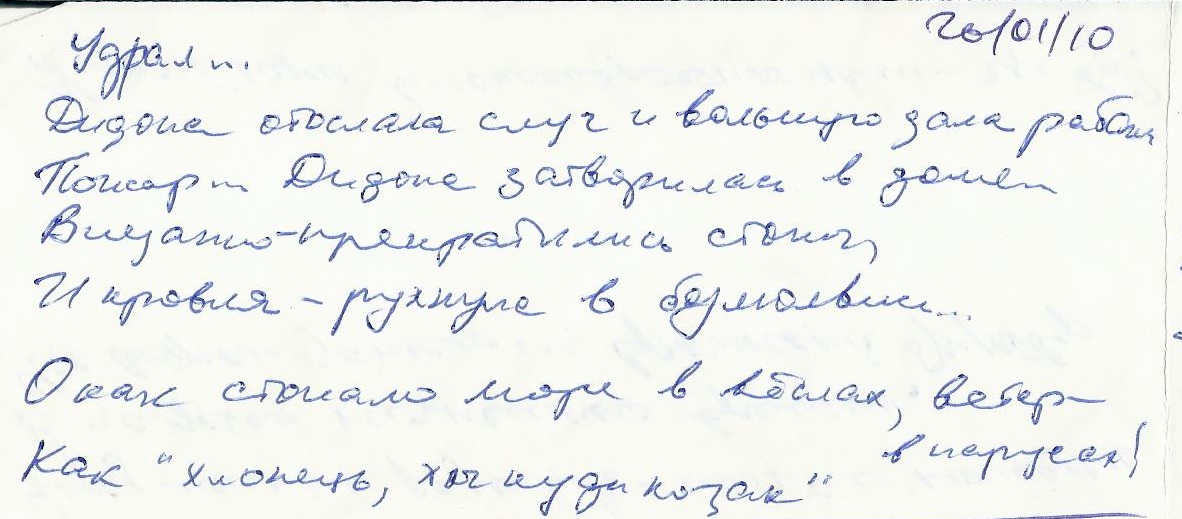 26/01/10
Удрал..
Дидона отослала слуг и вольную дала рабам
Пожар – Дидона затворилась в доме –
Внезапно – прекратились стоны,
И кровля – рухнула в безмолвии...
О как стонало море в вёслах, ветер –
в парусах!
Как "хлопець, хоч куди козак"